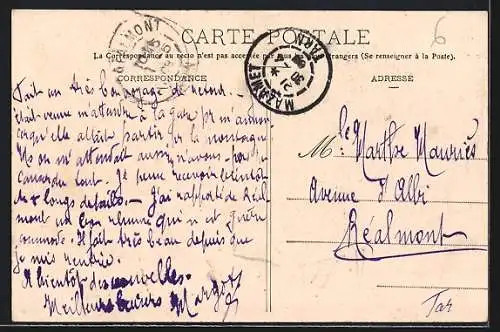 6
CARTE POSTALE
La Correspondance au recto n'est pas acceptée par tous les pays étrangers (Se renseigner à la Poste).
CORRESPONDANCE
ADRESSE
RÉALMONT
MAZAMET
TARN
Fait un très bon voyage de retour.
était venue m'attendre à la gare
lorsqu'elle allait partir sur la montagne
on s'attendait aussi
tout. Je pense recevoir bientôt
de + longs détails. J'ai rapporté de Réal
mont un bon rhume qui n'est guère
commode. Il fait très beau depuis que
je suis rentrée.
A bientôt des nouvelles.
Meilleurs baisers Margot
Mlle Marthe Mauriès
Avenue d'Albi
Réalmont
Tar